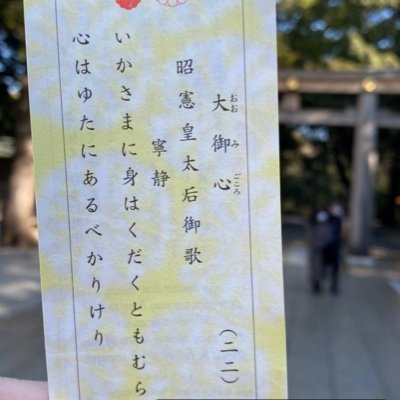 大御心 (二二)
おお み ごころ
昭憲皇太后御歌
寧静
いかさまに身はくだくともむら
心はゆたにあるべかりけり